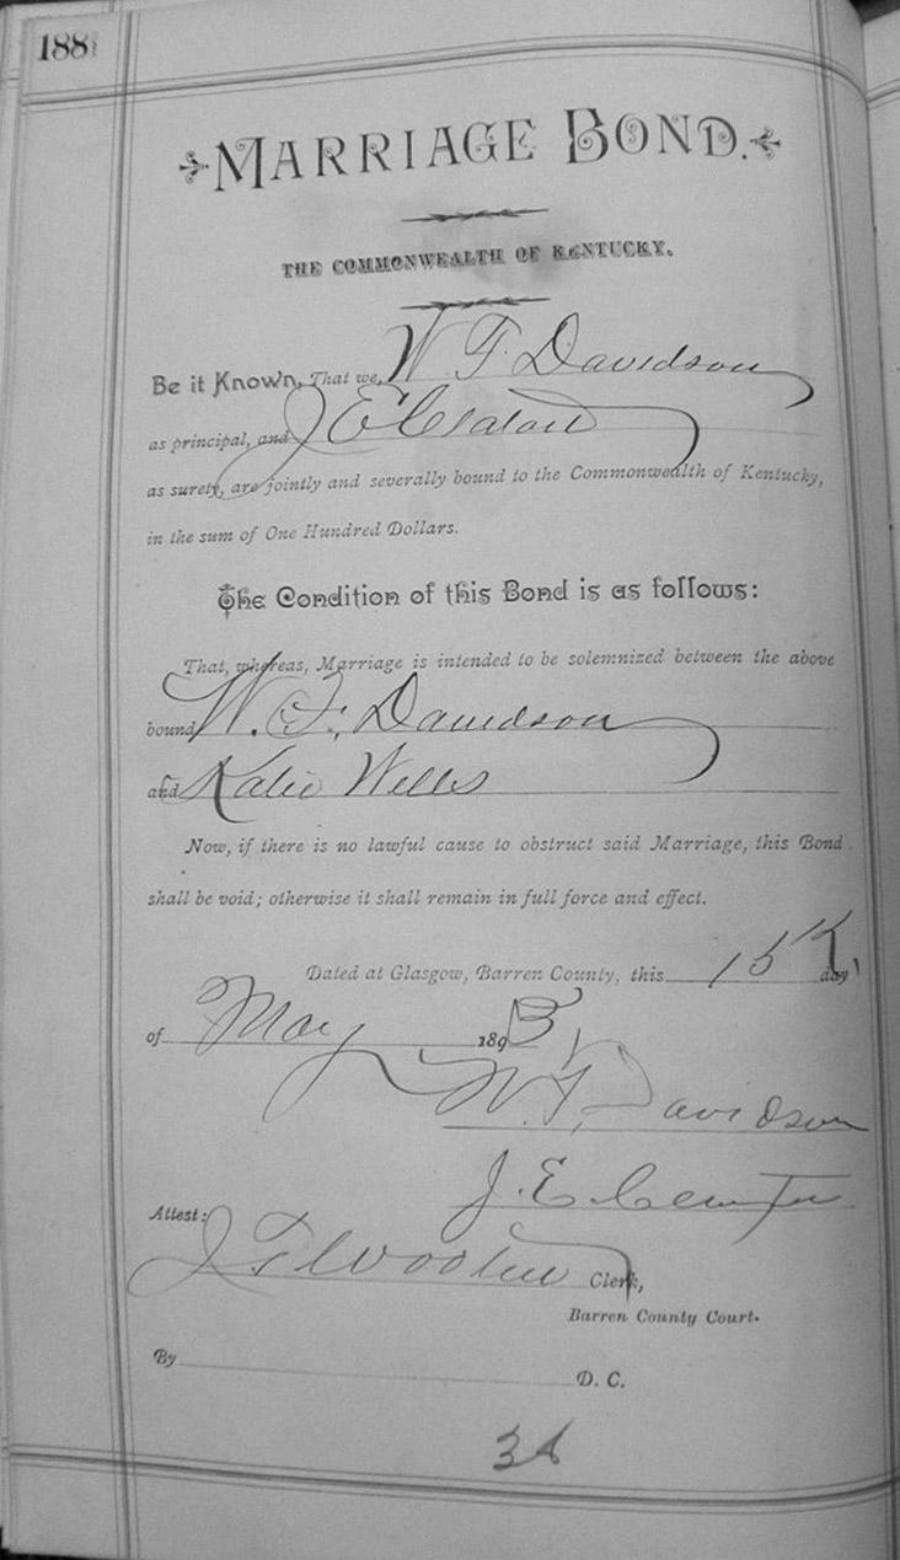 188
MARRIAGE BOND.
THE COMMONWEALTH OF KENTUCKY.
Be it Known, That we, W. F. Davidson
as principal, and J E
as surety, are jointly and severally bound to the Commonwealth of Kentucky,
in the sum of One Hundred Dollars.
The Condition of this Bond is as follows:
That, whereas, Marriage is intended to be solemnized between the above
bound W. F. Davidson
and Katie Wells
Now, if there is no lawful cause to obstruct said Marriage, this Bond
shall be void; otherwise it shall remain in full force and effect.
Dated at Glasgow, Barren County, this 15th day
of May 1893
W. F. Davidson
J. E.
Attest:
J T Wooten Clerk,
Barren County Court.
By D. C.